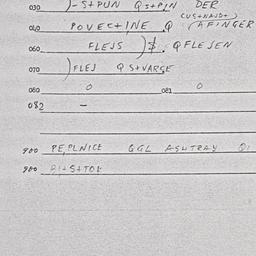 030 )-S+PUN QS+PIN DER
(US+NAJD+)
040 POVEC+INE Q (AFINGER
060 FLEJS )$. QFLEJEN
070 )FLEJ QS+VARGE
080 0 081 0
082 -
900 PE,PLNICE GGL ASHTRAY QI
900 PI+S+TOL